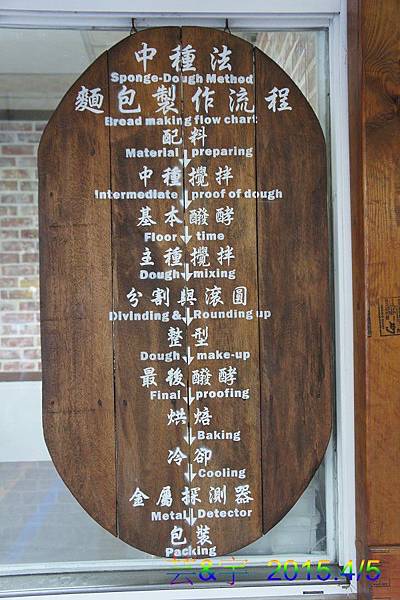 中種法
Sponge-Dough Method
麵包製作流程
Bread making flow chart
配料
Material preparing
中種攪拌
Intermediate proof of dough
基本醱酵
Floor time
主種攪拌
Dough mixing
分割與滾圓
Divinding & Rounding up
整型
Dough make-up
最後醱酵
Final proofing
烘焙
Baking
冷卻
Cooling
金屬探測器
Metal Detector
包裝
Packing
芸&宇 2015.4/5